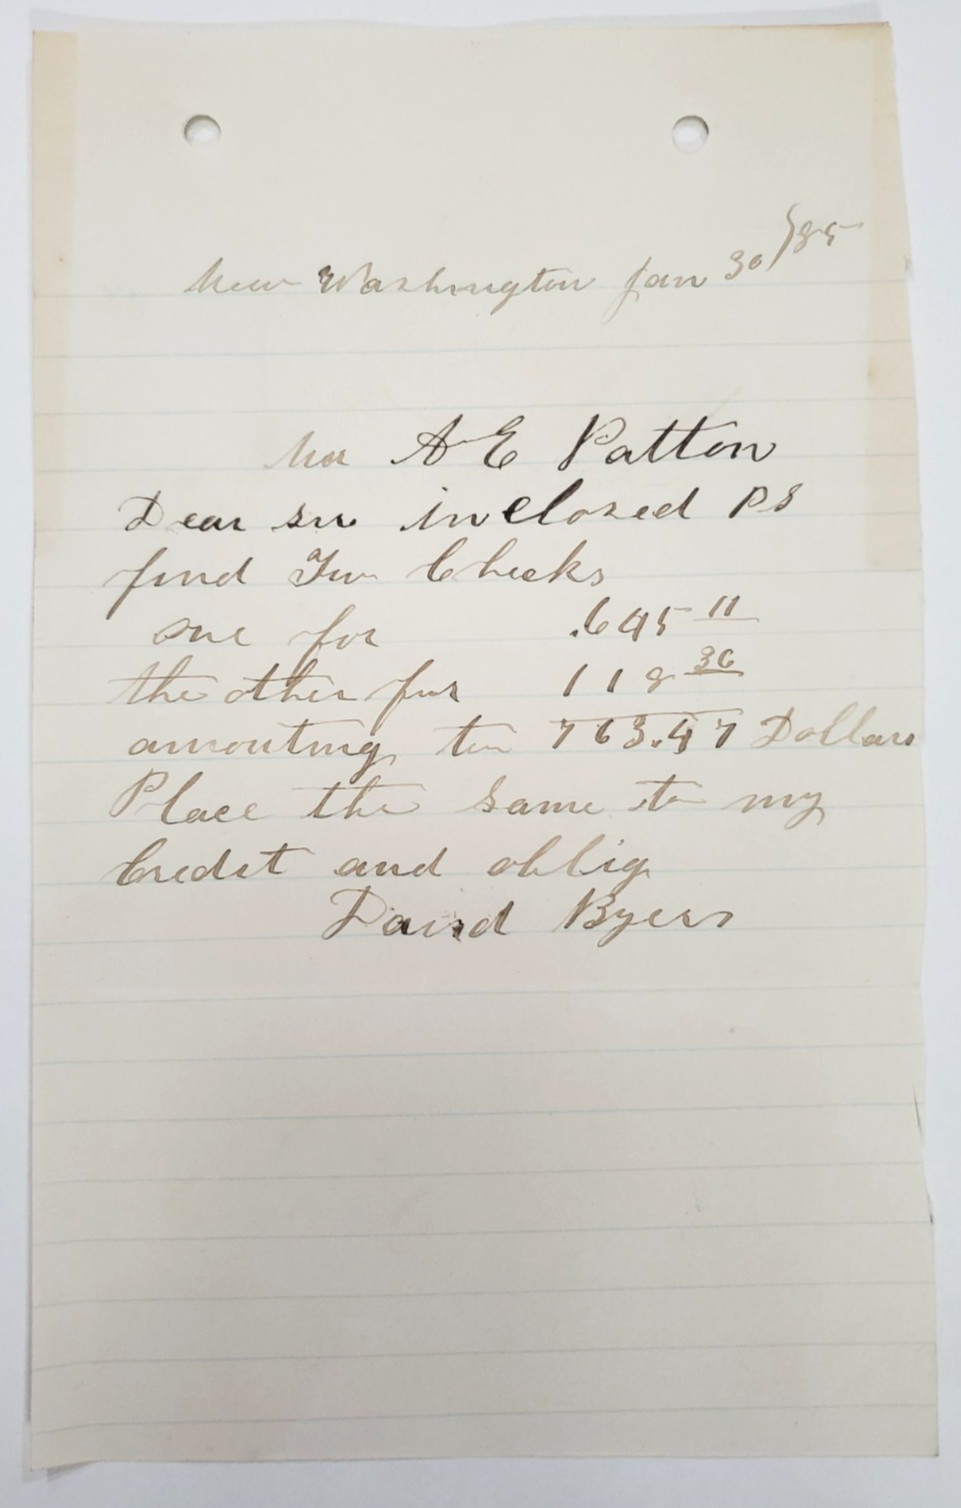 New Washington Jan 30/85
Mr A E Patton
Dear sir inclosed PS
find Two Checks
one for .645 11
the other for 118 36
amouting to 763.47 Dollars
Place the same to my
Credit and oblig
David Byers